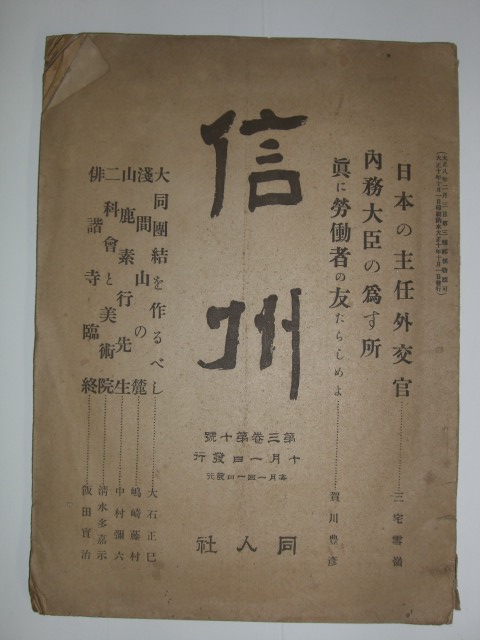 日本の主任外交官………三宅雪嶺
内務大臣の爲す所
眞に勞働者の友たらしめよ………賀川豊彦
信州
第三卷第十號
十月一日發行
毎月一回一日發行
同人社
大同團結を作るべし………大石正巳
淺間山の麓………嶋崎藤村
山鹿素行先生………中村彌六
二科會と美術院………清水多嘉示
俳諧寺臨終………飯田實治